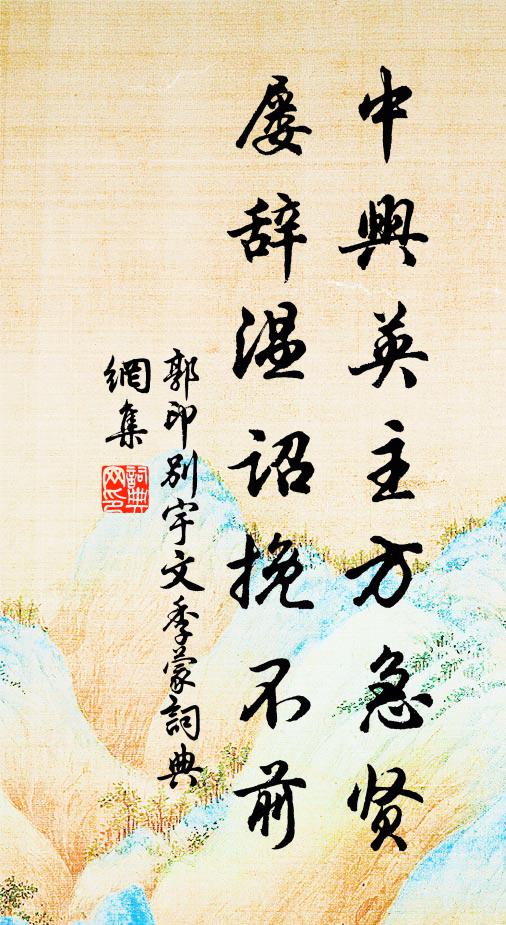 中興英主方急贤
屡辞温詔挽不前
郭印别宇文季蒙詞典
網集
詞典
网印